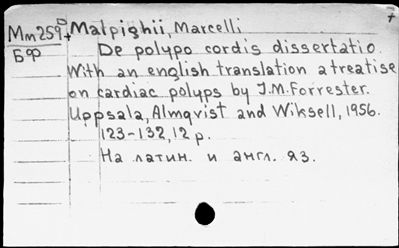 Mm259 Malpighii, Marcelli
БФ De polypo cordis dissertatio.
With an english translation a treatise
on cardiac polyps by J.M. Forrester.
Uppsala, Almqvist and Wiksell, 1956.
123-132, 12 p.
На латин. и англ. яз.